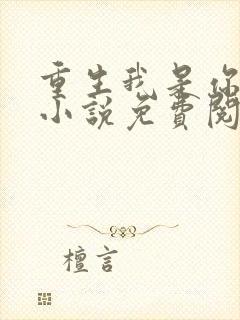 重生我是你
小説免費閱
檀言